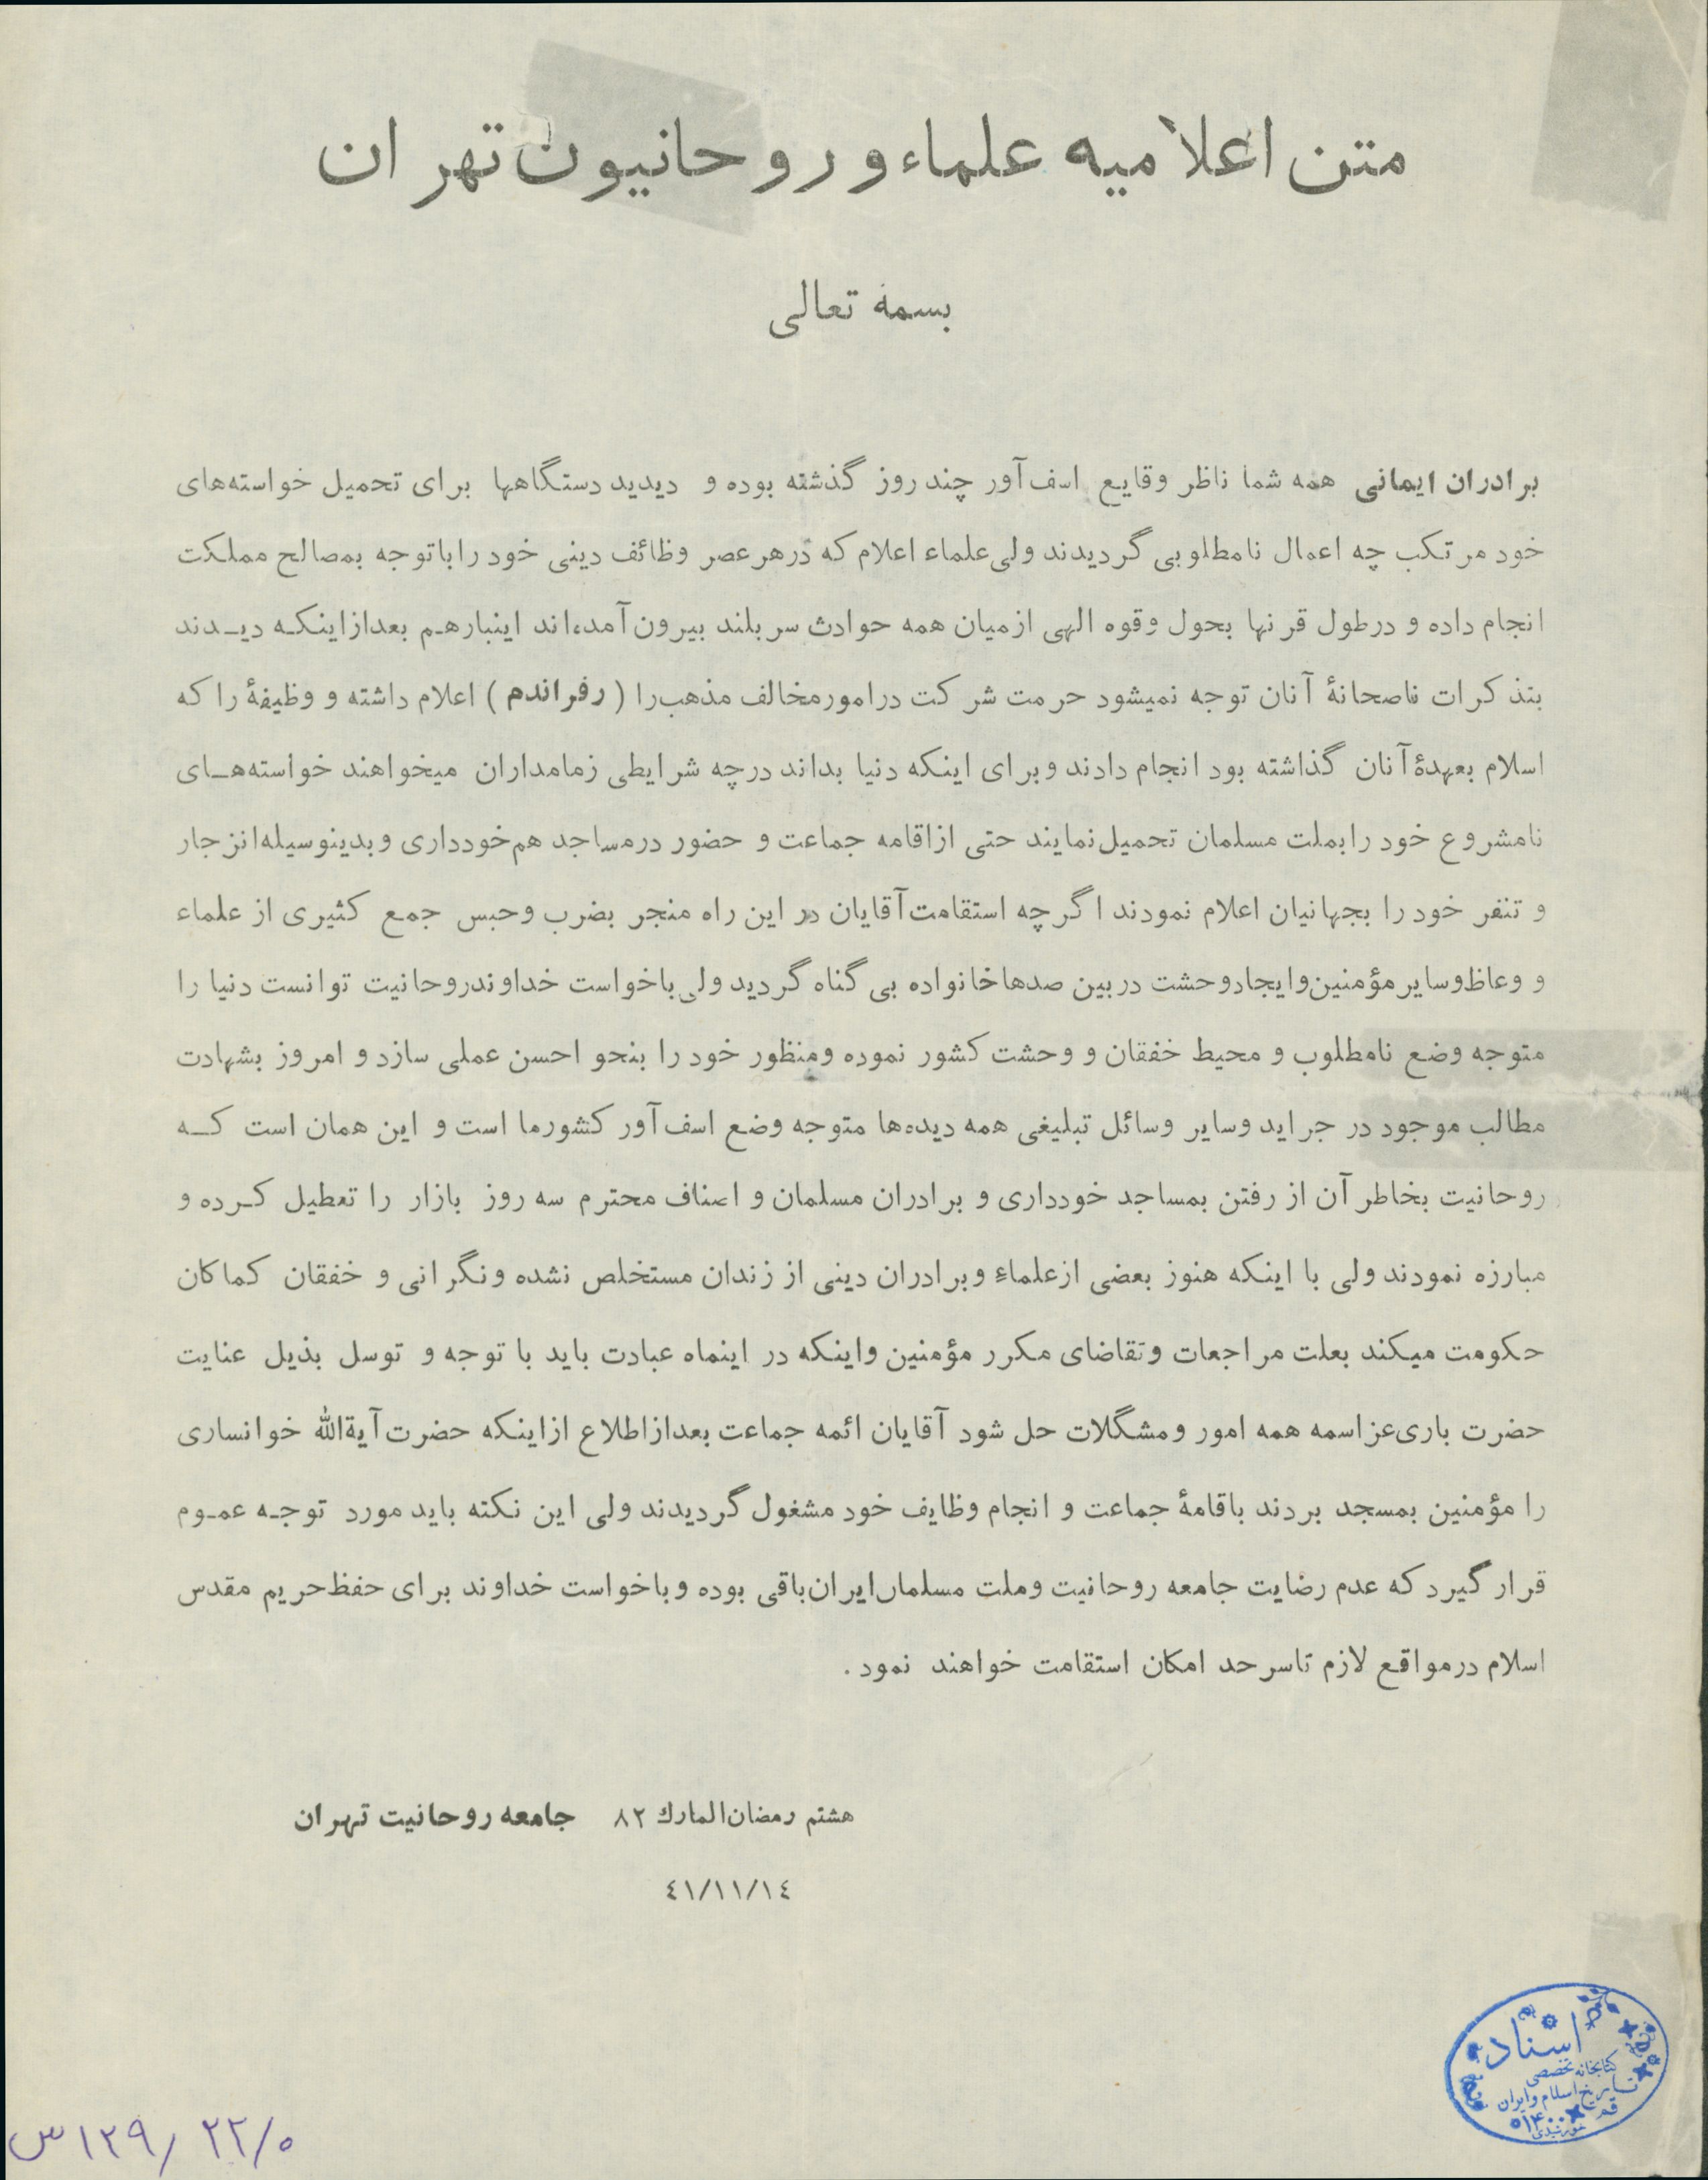 متن اعلامیه علماء و روحانیون تهران
بسمه تعالی
برادران ایمانی همه شما ناظر وقایع اسف‌آور چند روز گذشته بوده و دیدید دستگاهها برای تحمیل خواسته‌های
خود مرتکب چه اعمال نامطلوبی گردیدند ولی علماء اعلام که در هر عصر وظائف دینی خود را با توجه بمصالح مملکت
انجام داده و در طول قرنها بحول و قوه الهی از میان همه حوادث سربلند بیرون آمده‌اند اینبار هم بعد از اینکه دیدند
بتذکرات ناصحانهٔ آنان توجه نمیشود حرمت شرکت در امور مخالف مذهب را ( رفراندم ) اعلام داشته و وظیفهٔ را که
اسلام بعهدهٔ آنان گذاشته بود انجام دادند و برای اینکه دنیا بداند در چه شرایطی زمامداران میخواهند خواسته‌های
نامشروع خود را بملت مسلمان تحمیل نمایند حتی از اقامه جماعت و حضور در مساجد هم خودداری و بدینوسیله انزجار
و تنفر خود را بجهانیان اعلام نمودند اگرچه استقامت آقایان در این راه منجر بضرب و حبس جمع کثیری از علماء
و وعاظ و سایر مؤمنین و ایجاد وحشت در بین صدها خانواده بی گناه گردید ولی با خواست خداوند روحانیت توانست دنیا را
متوجه وضع نامطلوب و محیط خفقان و وحشت کشور نموده و منظور خود را بنحو احسن عملی سازد و امروز بشهادت
مطالب موجود در جراید و سایر وسائل تبلیغی همه دیده‌ها متوجه وضع اسف‌آور کشور ما است و این همان است که
روحانیت بخاطر آن از رفتن بمساجد خودداری و برادران مسلمان و اصناف محترم سه روز بازار را تعطیل کرده و
مبارزه نمودند ولی با اینکه هنوز بعضی از علماء و برادران دینی از زندان مستخلص نشده و نگرانی و خفقان کماکان
حکومت میکند بعلت مراجعات و تقاضای مکرر مؤمنین و اینکه در اینماه عبادت باید با توجه و توسل بذیل عنایت
حضرت باری عز اسمه همه امور و مشگلات حل شود آقایان ائمه جماعت بعد از اطلاع از اینکه حضرت آیةالله خوانساری
را مؤمنین بمسجد بردند باقامهٔ جماعت و انجام وظایف خود مشغول گردیدند ولی این نکته باید مورد توجه عموم
قرار گیرد که عدم رضایت جامعه روحانیت و ملت مسلمان ایران باقی بوده و با خواست خداوند برای حفظ حریم مقدس
اسلام در مواقع لازم تا سر حد امکان استقامت خواهند نمود .
هشتم رمضان‌المارك ۸۲ جامعه روحانیت تهران
٤١/١١/١٤
اسناد
کتابخانه تخصصی
تاریخ اسلام و ایران
قم
۱۴۰۰
۲۲/۰ /۱۲۹س